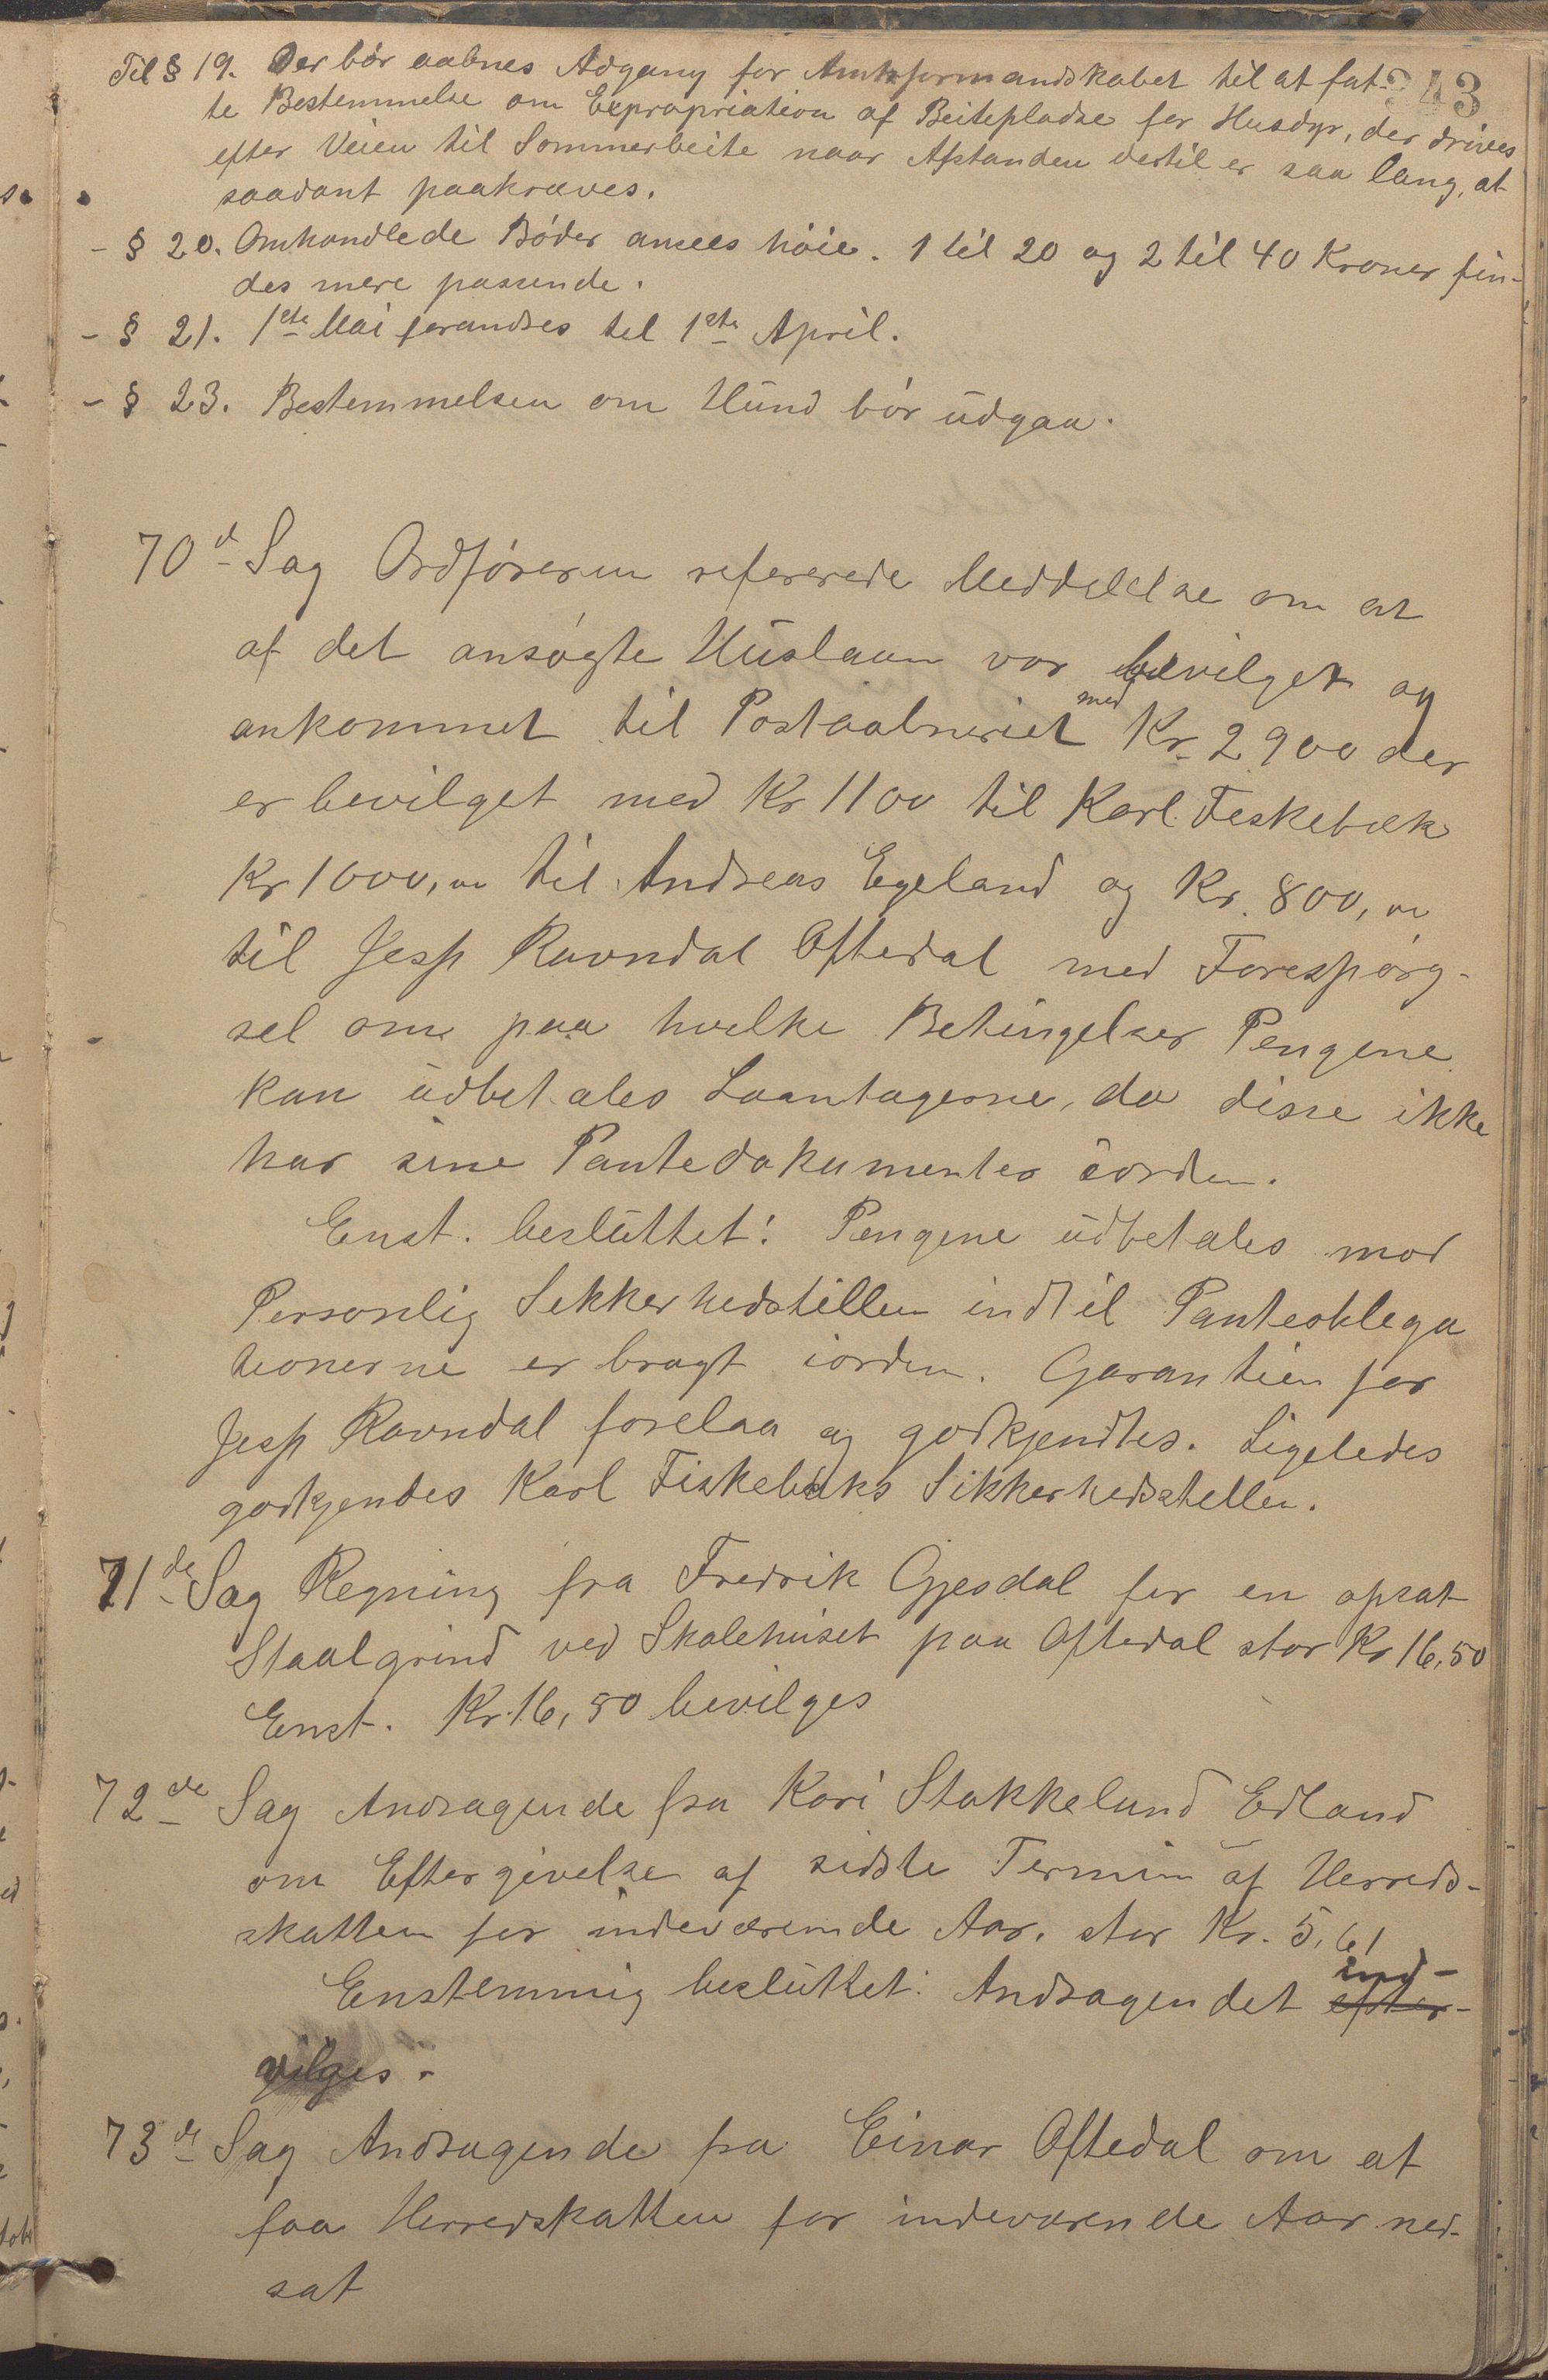 343
Til § 19. Der bör aabnes Adgang for Amtsformandskabet til at fat-
te Bestemmelse om Expropriation af Beitepladse for Husdyr, der drives
efter Veien til Sommerbeite naar Afstanden dertil er saa lang, at
saadant paakræves.
- § 20. Omhandlede Böder ansees höie. 1 til 20 og 2 til 40 Kroner fin-
des mere passende.
- § 21. 1ste Mai forandres til 1ste April.
- § 23. Bestemmelsen om Hund bör udgaa.
70d Sag Ordföreren refererede Meddelelse om at
af det ansögte Huslaan var bevilget og
ankommet til Postaabneriet med Kr 2900 der
er bevilget med Kr 1100 til Karl Feskebæk
Kr 1000,00 til Andreas Egeland og Kr. 800,00
til Jesp Ravndal Oftedal med Forespörg-
sel om paa hvelke Betingelser Pengene
kan udbetales Laantagerne, da disse ikke
har sine Pantedokumenter iorden.
Enst. besluttet: Pengene udbetales mod
Personlig Sekkerhedstillen indtil Pantobliga
tionerne er bragt iorden. Garantien for
Jesp Ravndal forelaa og godkjendtes. Ligeledes
godkjendes Karl Fiskebæks Sikkerhedsstellen.
71de Sag Regning fra Fredrik Gjesdal for en opsat
Staalgrind ved Skolehuset paa Oftedal stor Kr 16,50
Enst. Kr. 16,50 bevilges
72de Sag Andragende fra Kari Stokkelund Edland
om Eftergivelse af sidste Termin af Herreds-
skatten for indeværende Aar. stor Kr. 5,61
Enstemmig besluttet: Andragendet efter- ind-
vilges.
73de Sag Andragende fra Einar Oftedal om at
faa Herredskatten for indeværende Aar ned-
sat